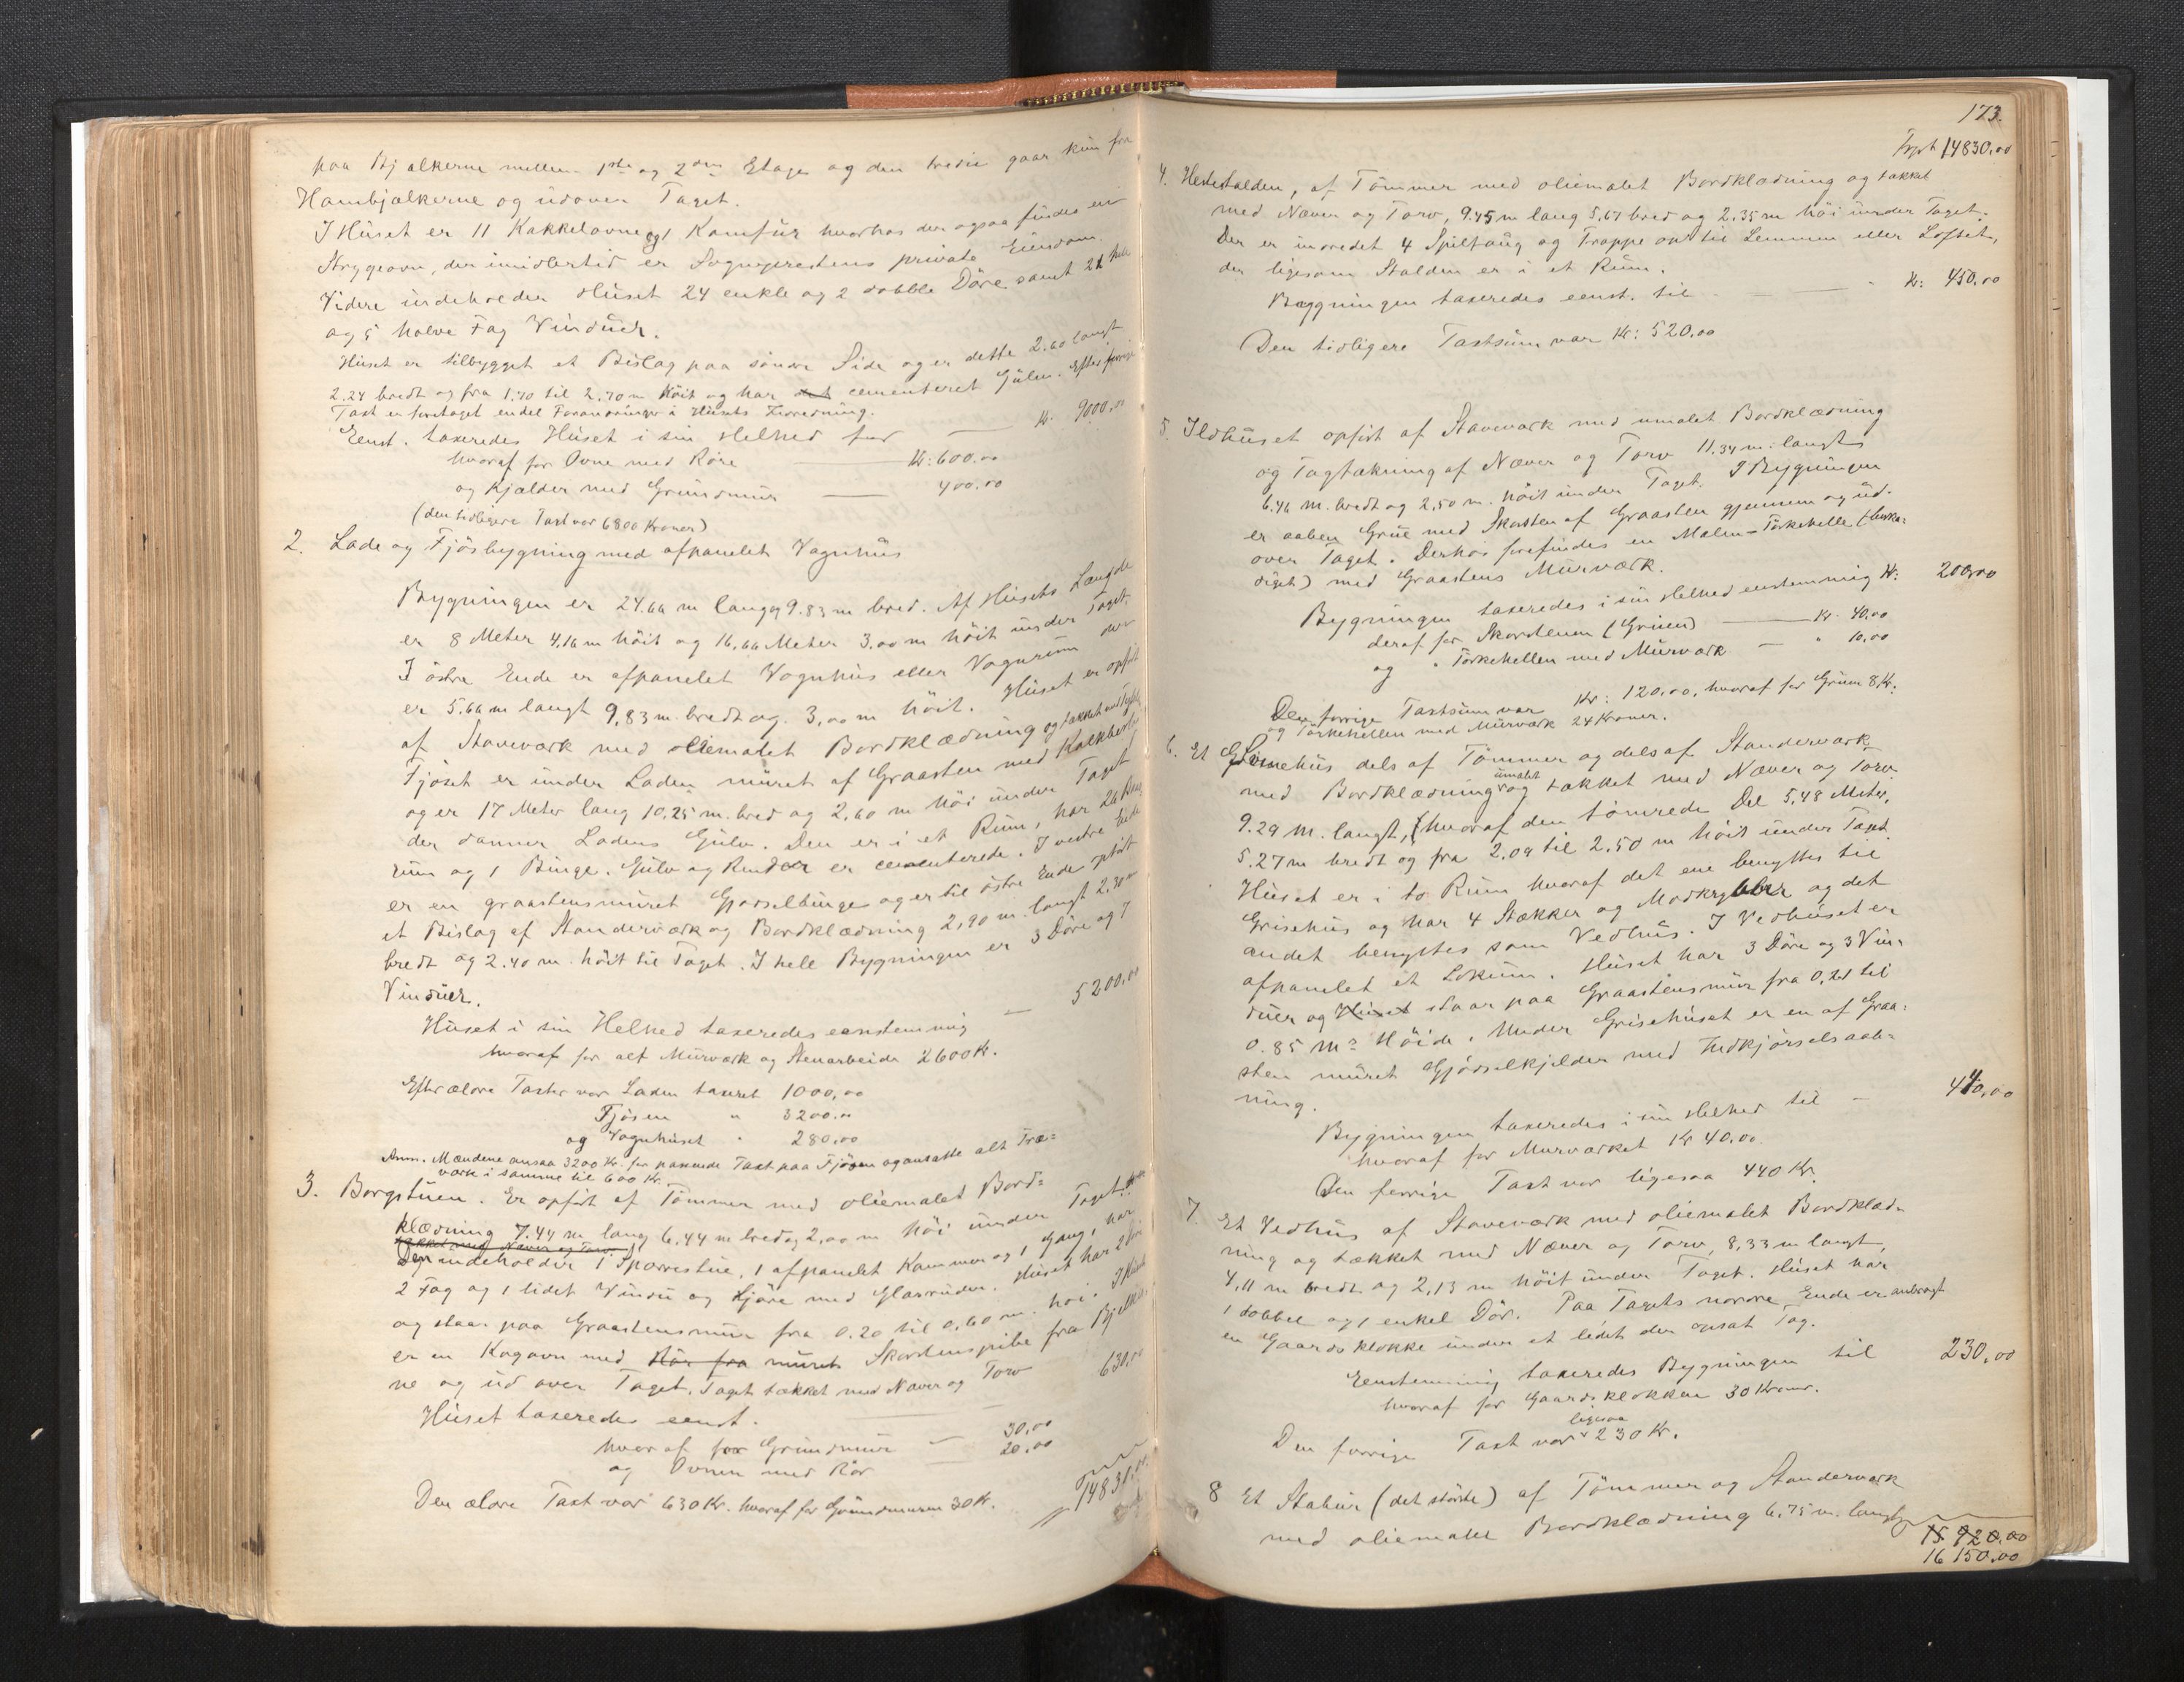 paa Bjælkerne mellem 1ste og 2den Etage og den tredie gaar kun fra
Hambjælkerne og udover Taget.
I Huset er 11 Kakkelovne og 1 Komfur hvorhos der ogsaa findes en
Strygeovn, der imidlertid er Sogneprestens private Eiendom.
Videre indeholder Huset 24 enkle og 2 dobble Döre samt 21 hele
og 5 halve Fag Vinduer.
Huset er tilbygget et Bislag paa söndre Side og er dette 2.60 langt
2.24 bredt og fra 1.70 til 2.70 m höit og har cementeret Gulv. Efter forrige
Taxt er foretaget endel Forandringer i Husets Indredning.
Eenst. taxeredes Huset i sin Helhed for — Kr. 9000,00
hvoraf for Ovne med Röre — Kr: 600.00
og Kjælder med Grundmur — 400.00
(den tidligere Taxt var 6800 Kroner)
2. Lade og Fjösbygning med afpanelet Vognhus
Bygningen er 24.66 m lang og 9.83 m bred. Af Husets Længde
er 8 Meter 4,16 m höit og 16,66 Meter 3,00 m höit under Taget.
I östre Ende er afpanelet Vognhus eller Vognrum der
er 5.66 m langt 9,83 m. bredt og 3,00 m höit. Huset er opfört
af Stavværk med oliemalet Bordklædning og tækket med
Fjöset er under Laden muret af Graasten med
og er 17 Meter lang 10,25 m. bred og 2,60 m höi under Taget
der danner Ladens Gulv. Den er i et Rum, har 26 Baas
rum og 1 Binge. Gulv og Render er cementerede. I vestre Ende
er en graastensmuret Gjödselbinge og er til östre Ende opfört
et Bislag af Standerværk og Bordklædning 2,90 m. langt 2,30 m
bredt og 2.40 m höit til Taget. I hele Bygningen er 3 Döre og 7
Vinduer.
Huset i sin Helhed taxeredes eenstemmig — 5200.00
hvoraf for alt Murværk og Stenarbeide 2600 Kr.
Efter ældre Taxter var Laden taxeret 1000,00
Fjösen " 3200.00
og Vognhuset " 280,00
Anm. Mændene ansaa 3200 Kr. for passende Taxt paa Fjösen og ansatte alt Træ=
værk i samme til 600 Kr.
3. Borgstuen. Er opfört af Tömmer med oliemalet Bord=
klædning 7.44 m lang 6,44 m bred og 2,00 m höi under Taget
tækket med Næver og Torv.
Den indeholder 1 Sparrestue, 1 afpanelet Kammer og 1 Gang, har
2 Fag og 1 lidet Vindu og Ljöre med Glasruder. Huset har 2
og staar paa Graastensmur fra 0.20 til 0,60 m. höi. I Huset
er en Kogovn med Rör fra muret Skorstenspibe fra Bjelker=
ne og ud over Taget. Taget tækket med Næver og Torv
Huset taxeredes eenst. — 630,00
hvoraf for Grundmur — 30,00
og Ovnen med Rör 20.00
Den ældre Taxt var 630 Kr. hvoraf for Grundmuren 30 Kr.
14830.00
173.
Trpt 14830.00
4. Hestestalden, af Tömmer med oliemalet Bordklædning og tækket
med Næver og Torv, 9.45 m lang 5,67 bred og 2.35 m höi under Taget.
Der er indredet 4 Spiltaug og Trappe op til Lemmen eller Loftet,
der ligesom Stalden er i et Rum.
Byggningen taxeredes eenst. til — Kr: 450.00
Den tidligere Taxtsum var Kr: 520.00
5. Ildhuset opfört af Stavværk med umalet Bordklædning
og Tagtækning af Næver og Torv 11.34 m. langt
6.46 m. bredt og 2,50 m. höit under Taget. I Bygningen
er aaben Grue med Skorsten af Graasten gjennem og ud-
over Taget. Derhos forefindes en Malm-Törkehelle (beska=
diget) med Graastens Murværk.
Bygningen taxeredes i sin Helhed eenstemmig Kr: 200,00
deraf for Skorstenen (Gruen) — Kr. 40,00
og " Törkehellen med Murværk — " 10,00
Den forrige Taxtsum var Kr: 120,00, hvoraf for Gruen 8 Kr.
og Törkehellen med Murværk 24 Kroner.
6. Et Grisehus dels af Tömmer og dels af Standerværk
med umalet Bordklædning og tækket med Næver og Torv
9.29 m. langt, (hvoraf den tömrede Del 5,48 Meter,
5.27 m bredt og fra 2,09 til 2.50 m höit under Taget.
Huset er i to Rum hvoraf det ene benyttes til
Grisehus og har 4 Stækker og Madkrybber og det
andet benyttes som Vedhus. I Vedhuset er
afpanelet et Lokum. Huset har 3 Döre og 3 Vin-
duer og Huset staar paa Graastensmur fra 0,21 til
0.85 ms Höide. Under Grisehuset er en af Graa=
sten muret Gjödselkjelder med Indkjörselsaab-
ning.
Bygningen taxeredes i sin Helhed til — 440,00
hvoraf for Murværket Kr 40.00.
Den forrige Taxt var ligesaa 440 Kr.
7. Et Vedhus af Stavværk med oliemalet Bordklæd-
ning og tækket med Næver og Torv, 8,33 m langt,
4,11 m bredt og 2,13 m höit under Taget. Huset har
1 dobbel og 1 enkel Dör. Paa Tagets nordre Ende er anbragt
en Gaardsklokke under et lidet der opsat Tag.
Eenstemmig taxeredes Bygningen til 230.00
hvoraf for Gaardsklokken 30 Kroner.
Den forrige Taxt var ligesaa 230 Kr.
8 Et Stabur (det störste) af Tömmer og Standerværk
med oliemalet Bordklædning 6.75 m. langt,
15 920.00
16 150.00